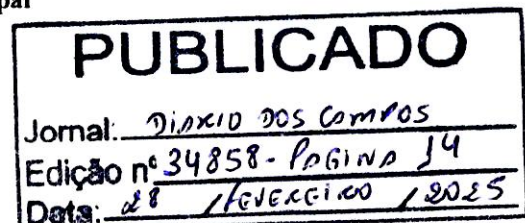 pal
PUBLICADO
Jornal: DIÁRIO DOS CAMPOS
Edição nº 34858 - PÁGINA 14
Data: 28 / FEVEREIRO / 2025